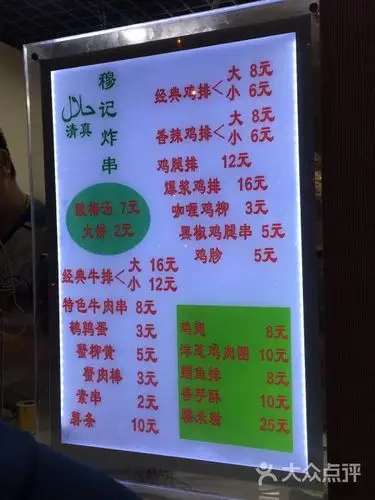 حلال
清真
穆记炸串
经典鸡排 大 8元
小 6元
香辣鸡排 大 8元
小 6元
鸡腿排 12元
爆浆鸡排 16元
咖喱鸡柳 3元
黑椒鸡腿串 5元
鸡胗 5元
酸梅汤 7元
大饼 2元
经典牛排 大 16元
小 12元
特色牛肉串 8元
鹌鹑蛋 3元
蟹柳黄 5元
蟹肉棒 3元
素串 2元
薯条 10元
鸡翅 8元
洋葱鸡肉圈 10元
鳕鱼排 8元
香芋酥 10元
25元
大众点评